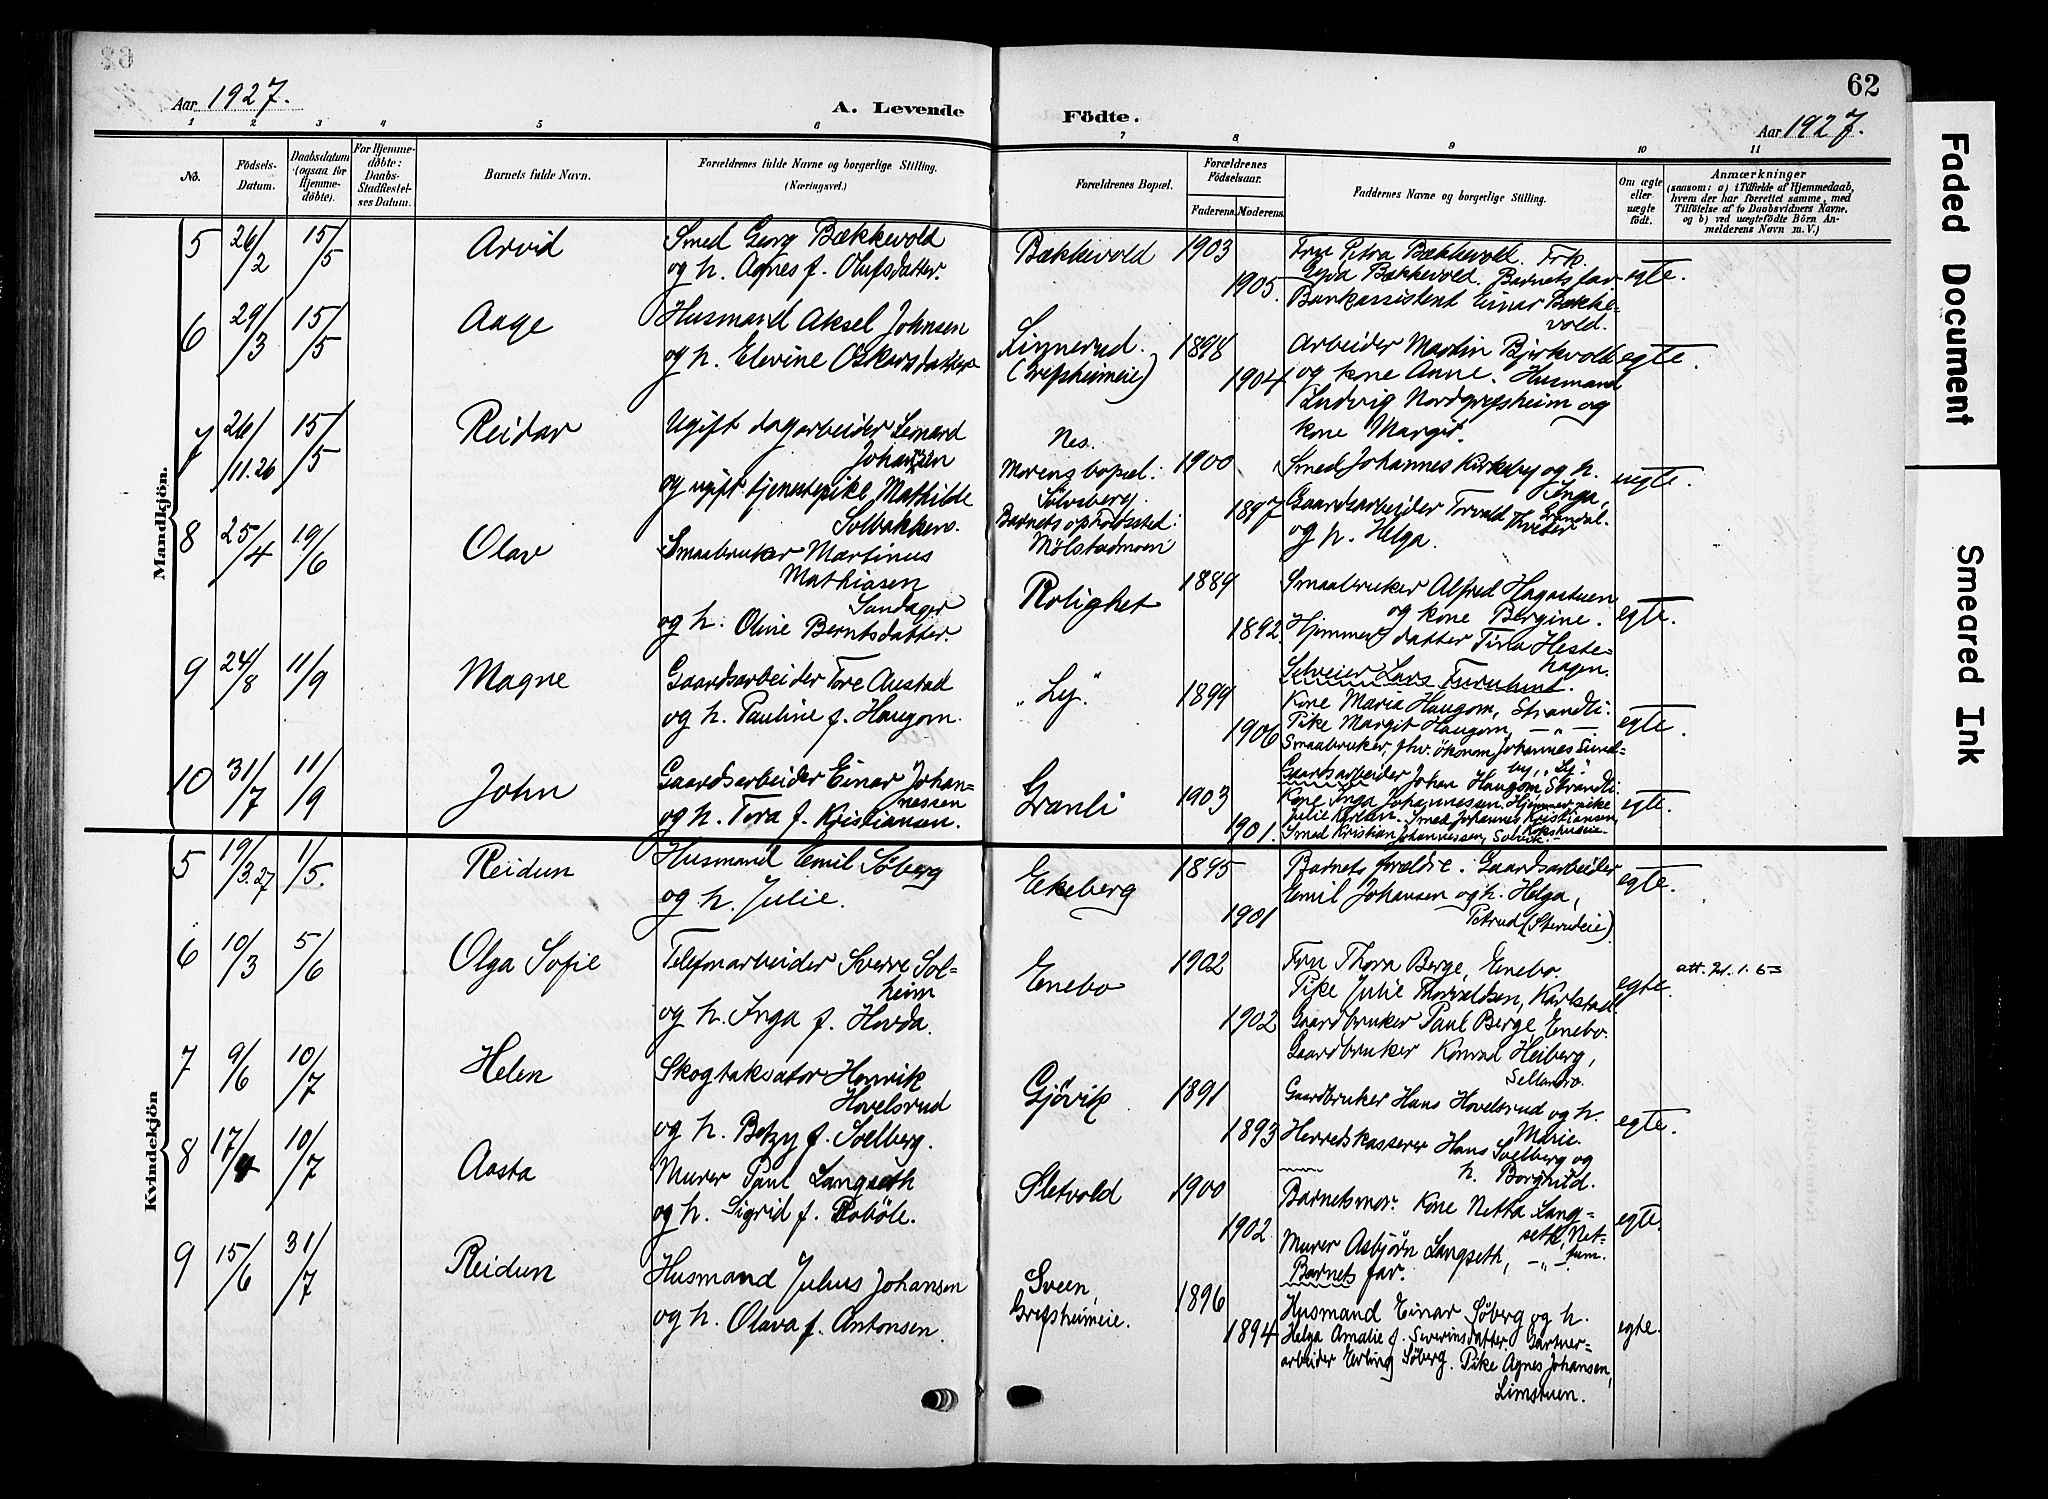 62
Aar 1927.
A. Levende
Födte.
Aar 1927.
1 2 3 4 5 6 7 8 9 10 11
No.
Födsels-
Datum.
Daabsdatum
(ogsaa for
Hjemme-
döbte).
For Hjemme-
döbte:
Daabs-
Stadfæstel-
ses Datum.
Barnets fulde Navn.
Forældrenes fulde Navne og borgerlige Stilling.
(Næringsvei.)
Forældrenes Bopæl.
Forældrenes
Födselsaar.
Faderens. Moderens.
Faddernes Navne og borgerlige Stilling.
Om ægte
eller
uægte
födt.
Anmærkninger
(saasom: a) i Tilfælde af Hjemmedaab,
hvem der har forrettet samme, med
Tilföielse af to Daabsvidners Navne,
og b) ved uægtefödte Börn An-
melderens Navn m. V.)
Mandkjön.
5 26/2 15/5 Arvid
Smed Georg Bækkevold
og h. Agnes f. Olufsdatter.
Bækkevold 1903
1905.
Frue Petra Bækkevold. Frk.
Gyda Bækkevold. Barnets far
Bankassistent Einar Bække-
vold.
egte.
6 29/3 15/5 Aage
Husmand Aksel Johnsen
og h. Elevine Oskarsdatter
Linnerud.
(Grefsheimeie)
1898
1904
Arbeider Martin Bjirkvold
og kone Anne. Husmand
Ludvig Nordgrefsheim og
kone Margit.
egte.
7 26/11.26 15/5 Reidar
Ugift dagarbeider Leonard
Johansen
og ugift tjenestepike Mathilde
Solbakken.
Nes.
Morens bopæl:
Sølvsberg.
Barnets opholdssted:
Mølstadmoen
1900
1897
Smed Johannes Kirkeby og h.
Inga,
Gaardsarbeider Torvald
og h. Helga.
uegte.
8 25/4 19/6 Olav
Smaabruker Martinus
Mathiasen
Sandager
og h. Oline Berntsdatter.
Rolighet 1889
1892.
Smaabruker Alfred Hagastuen
og kone Bergine.
Hjemmev. datter Tina Heste-
hagen.
egte.
9 24/8 11/9 Magne
Gaardsarbeider Tore Austad
og h. Pauline f. Haugom.
"Ly." 1899
1906
Selveier Lars Furulund.
Kone Maria Haugom, Strandli.
Pike Margit Haugom, — " —
Smaabruker, fhv. økonom Johannes Sund-
by, "Ly."
egte.
10 31/7 11/9 John
Gaardsarbeider Einar Johan-
nessen
og h. Tora f. Kristiansen.
Granli 1903
1901.
Gaardsarbeider Johan Haugom, Strandli.
Kone Inga Johannessen. Hjemmev. pike
Julie Karlsen. Smed Johannes Kristiansen,
Smed Kristian Johannessen, Solvik.
egte.
Kvindekjön
5 19/3.27 1/5. Reidun
Husmand Emil Søberg
og h. Julie.
Ekeberg 1895
1901
Barnets foreldre. Gaardsarbeider
Emil Johansen og h. Helga,
Petrud (Sterudeie)
egte.
6 10/3 5/6 Olga Sofie
Telefonarbeider Sverre Sol-
heim
og h. Inga f. Hovda.
Enebo 1902
1902
Fru Thora Berge, Enebo.
Pike Julie Thorvaldsen, Karlstad.
Gaardbruker Paul Berge, Enebo.
Gaardbruker Konrad Heiberg,
egte.
att. 21.1.53
7 9/6 10/7 Helen
Skogtaksator Henrik
Hovelsrud
og h. Betzy f. Soelberg.
Gjövik 1891
1893
Gaardbruker Hans Hovelsrud og h.
Marie.
Herredskasserer Hans Soelberg og
h. Borghild.
egte.
8 17/4 10/7 Aasta
Murer Paul Langseth
og h. Sigrid f. Robøle.
Sletvold 1900
1902
Barnets mor. Kone Netta Lang-
seth, Net-
fum.
Murer Asbjørn Langseth, — " —
Barnets far.
egte.
9 15/6 31/7 Reidun
Husmand Julius Johansen
og h. Olava f. Antonsen.
Sveen,
Grefsheimeie.
1896
1894
Husmand Einar Søberg og h.
Helga Amalie f. Severinsdatter. Gartner-
arbeider Erling Søberg. Pike Agnes Johansen,
Limstuen.
egte.
Faded Document
Smeared Ink